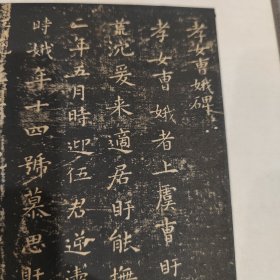 孝女曹娥碑
孝女曹娥者上虞曹盱
荒沉爰来適居盱能撫
二年五月時迎伍君逆濤
時娥年十四號慕思盱